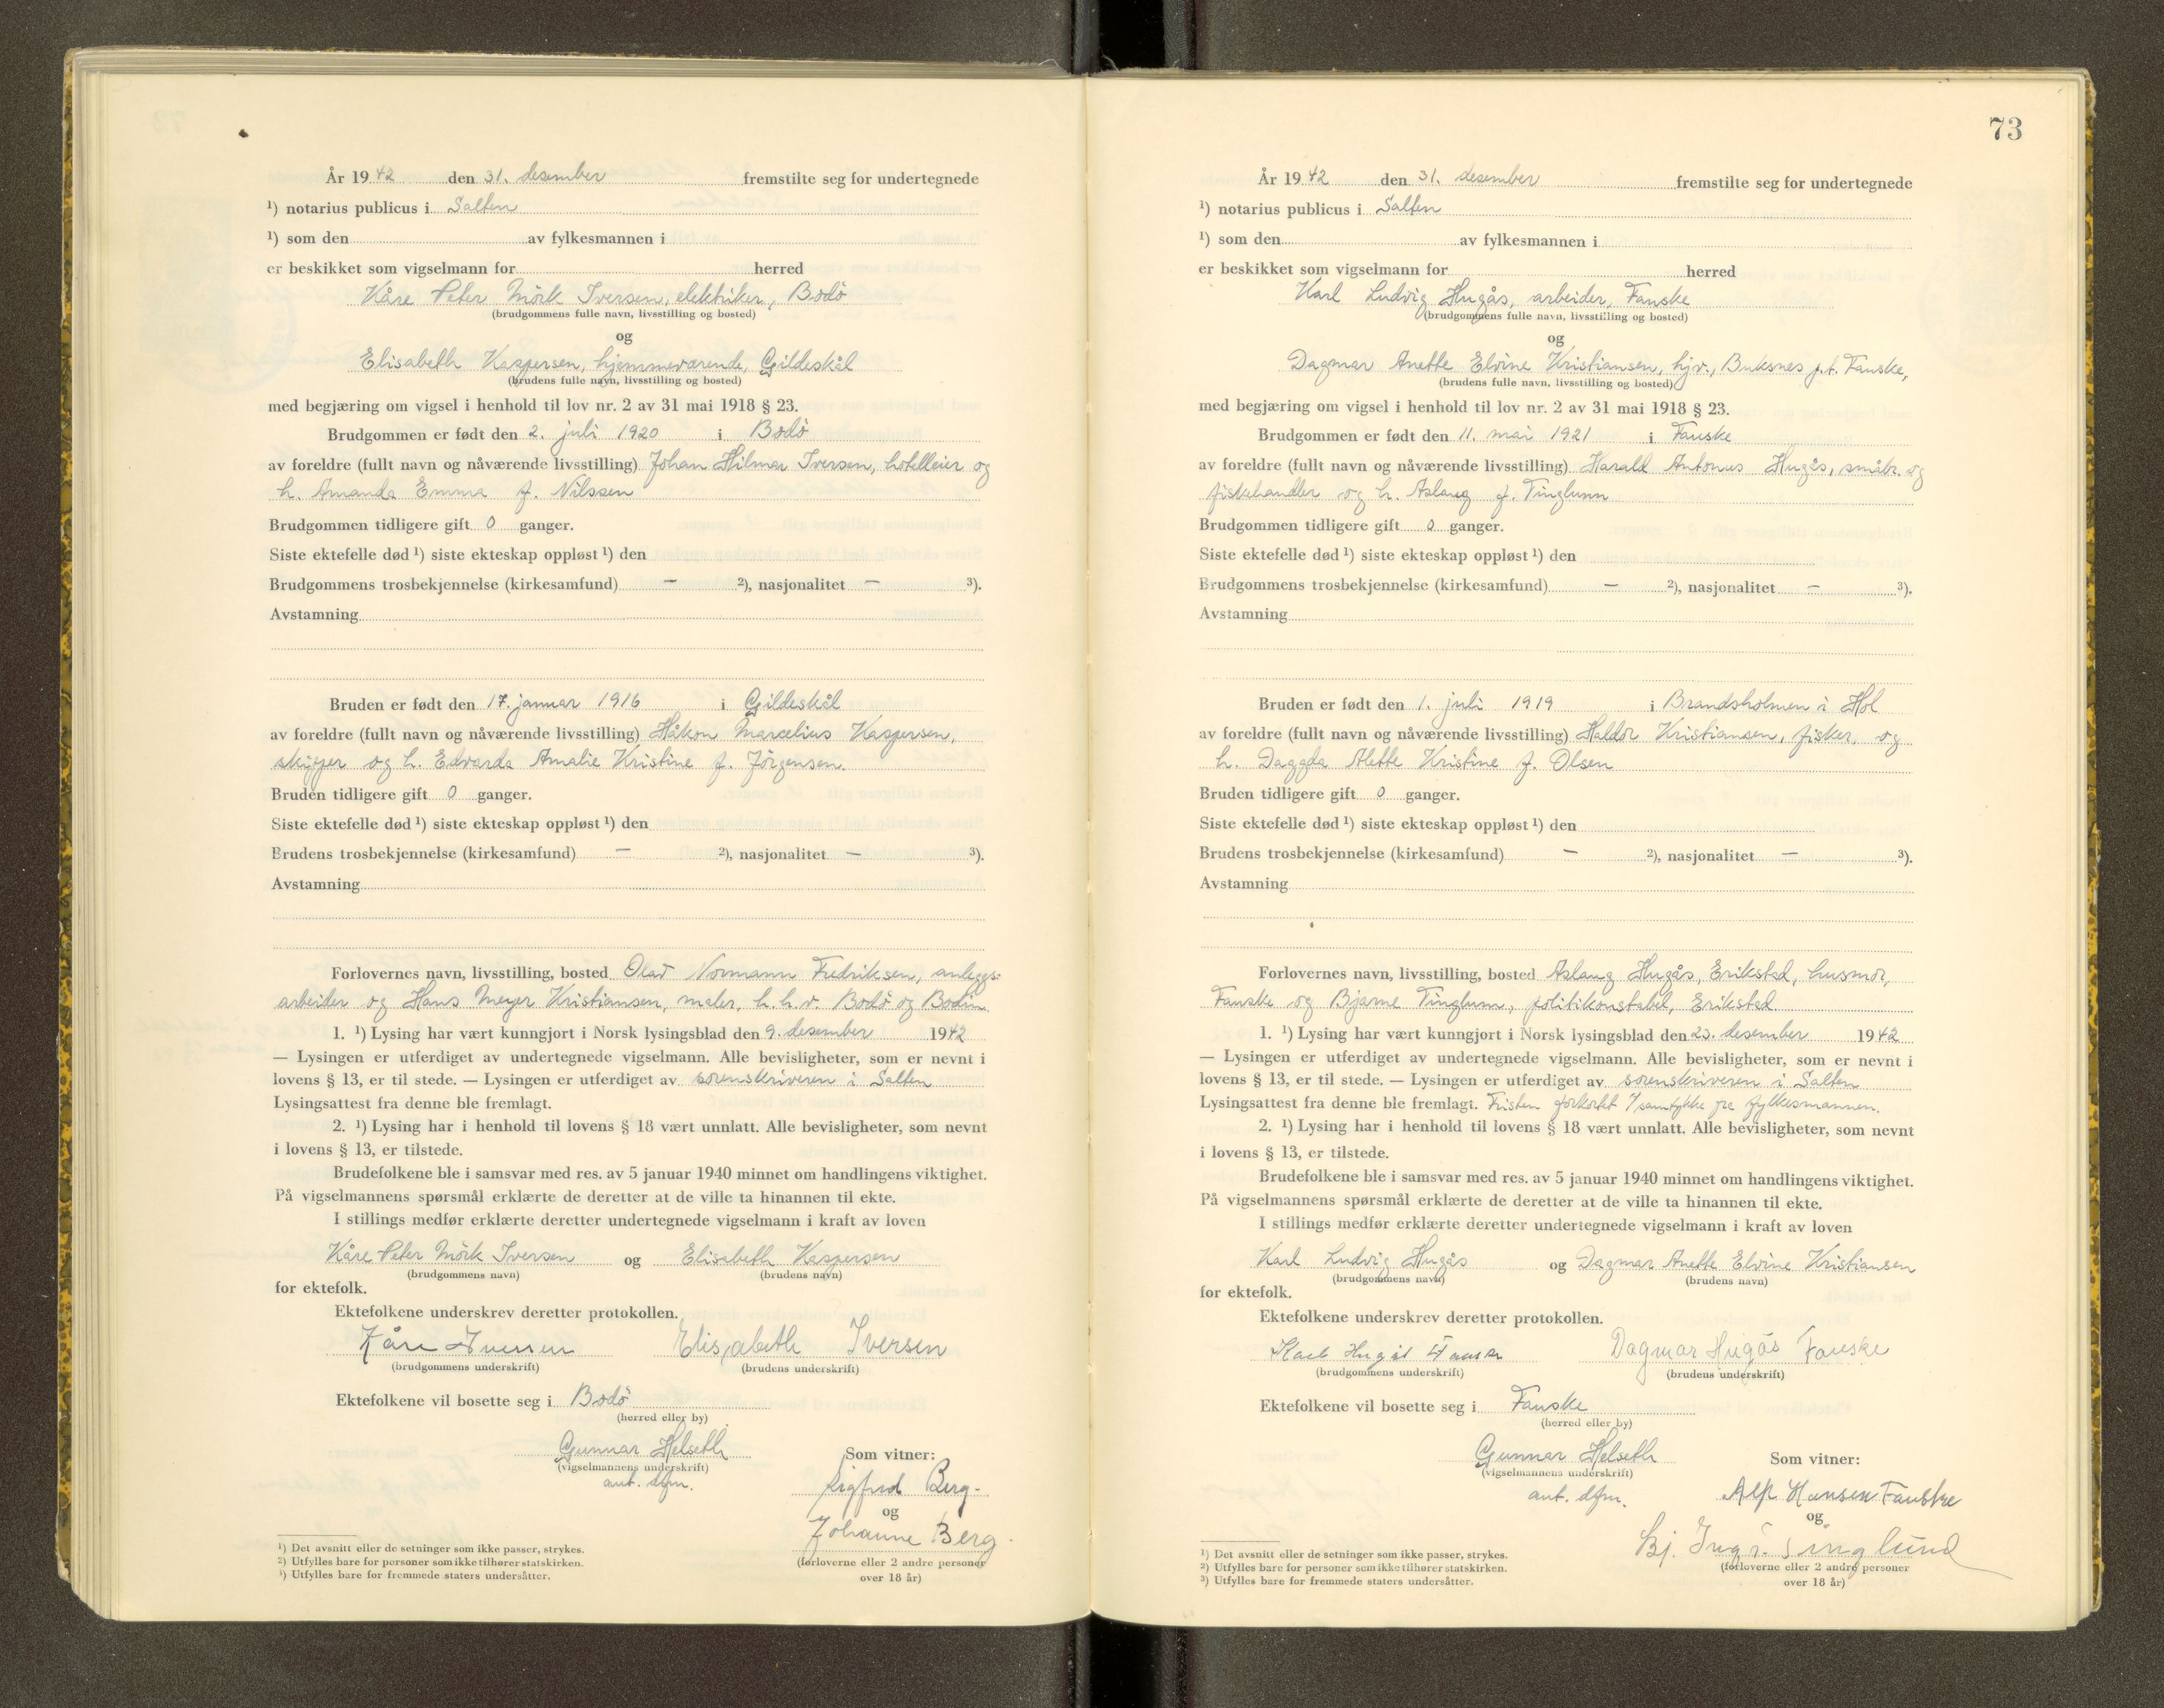 År 1942 den 31. desember fremstilte seg for undertegnede
¹) notarius publicus i Salten
¹) som den av fylkesmannen i
er beskikket som vigselmann for herred
Kåre Peter Mörk Iversen, elektriker, Bodö
(brudgommens fulle navn, livsstilling og bosted)
og
Elisabeth Kaspersen, hjemmeværende, Gildeskål
(brudens fulle navn, livsstilling og bosted)
med begjæring om vigsel i henhold til lov nr. 2 av 31 mai 1918 § 23.
Brudgommen er født den 2. juli 1920 i Bodö
av foreldre (fullt navn og nåværende livsstilling) Johan Hilmar Iversen, hotelleier og
h. Amanda Emma f. Nilssen
Brudgommen tidligere gift 0 ganger.
Siste ektefelle død ¹) siste ekteskap oppløst ¹) den
Brudgommens trosbekjennelse (kirkesamfund) — ²), nasjonalitet — ³).
Avstamning
Bruden er født den 17. januar 1916 i Gildeskål
av foreldre (fullt navn og nåværende livsstilling) Håkon Marcelius Kaspersen,
skipper og h. Edvarda Amalie Kristine f. Jörgensen.
Bruden tidligere gift 0 ganger.
Siste ektefelle død ¹) siste ekteskap oppløst ¹) den
Brudens trosbekjennelse (kirkesamfund) — ²), nasjonalitet — ³).
Avstamning
Forlovernes navn, livsstilling, bosted Olav Normann Fredriksen, anleggs-
arbeider og Hans Meyer Kristiansen, maler, h.h.v. Bodö og Bodin
1. ¹) Lysing har vært kunngjort i Norsk lysingsblad den 9. desember 1942
— Lysingen er utferdiget av undertegnede vigselmann. Alle bevisligheter, som er nevnt i
lovens § 13, er til stede. — Lysingen er utferdiget av sorenskriveren i Salten
Lysingsattest fra denne ble fremlagt.
2. ¹) Lysing har i henhold til lovens § 18 vært unnlatt. Alle bevisligheter, som nevnt
i lovens § 13, er tilstede.
Brudefolkene ble i samsvar med res. av 5 januar 1940 minnet om handlingens viktighet.
På vigselmannens spørsmål erklærte de deretter at de ville ta hinannen til ekte.
I stillings medfør erklærte deretter undertegnede vigselmann i kraft av loven
Kåre Peter Mörk Iversen og Elisabeth Kaspersen
(brudgommens navn) (brudens navn)
for ektefolk.
Ektefolkene underskrev deretter protokollen.
Kåre Iversen Elisabeth Iversen
(brudgommens underskrift) (brudens underskrift)
Ektefolkene vil bosette seg i Bodö
(herred eller by)
Gunnar Helseth Som vitner:
(vigselmannens underskrift)
aut. dfm.
Sigfred Berg.
og
Johanne Berg.
(forloverne eller 2 andre personer
over 18 år)
¹) Det avsnitt eller de setninger som ikke passer, strykes.
²) Utfylles bare for personer som ikke tilhører statskirken.
³) Utfylles bare for fremmede staters undersåtter.
73
År 1942 den 31. desember fremstilte seg for undertegnede
¹) notarius publicus i Salten
¹) som den av fylkesmannen i
er beskikket som vigselmann for herred
Karl Ludvig Hugås, arbeider, Fauske
(brudgommens fulle navn, livsstilling og bosted)
og
Dagmar Anette Elvine Kristiansen, hjv., Buksnes p.t. Fauske,
(brudens fulle navn, livsstilling og bosted)
med begjæring om vigsel i henhold til lov nr. 2 av 31 mai 1918 § 23.
Brudgommen er født den 11. mai 1921 i Fauske
av foreldre (fullt navn og nåværende livsstilling) Harald Antonus Hugås, småbr. og
fiskehandler og h. Aslaug f. Tinglum
Brudgommen tidligere gift 0 ganger.
Siste ektefelle død ¹) siste ekteskap oppløst ¹) den
Brudgommens trosbekjennelse (kirkesamfund) — ²), nasjonalitet — ³).
Avstamning
Bruden er født den 1. juli 1919 i Brandsholmen i Hol
av foreldre (fullt navn og nåværende livsstilling) Haldor Kristiansen, fisker, og
h. Dagda Alette Kristine f. Olsen
Bruden tidligere gift 0 ganger.
Siste ektefelle død ¹) siste ekteskap oppløst ¹) den
Brudens trosbekjennelse (kirkesamfund) — ²), nasjonalitet — ³).
Avstamning
Forlovernes navn, livsstilling, bosted Aslaug Hugås, Erikstad, husmor,
Fauske og Bjarne Tinglum, politikonstabel, Erikstad
1. ¹) Lysing har vært kunngjort i Norsk lysingsblad den 23. desember 1942
— Lysingen er utferdiget av undertegnede vigselmann. Alle bevisligheter, som er nevnt i
lovens § 13, er til stede. — Lysingen er utferdiget av sorenskriveren i Salten
Lysingsattest fra denne ble fremlagt. Fristen forkortet / samtykke fra fylkesmannen.
2. ¹) Lysing har i henhold til lovens § 18 vært unnlatt. Alle bevisligheter, som nevnt
i lovens § 13, er tilstede.
Brudefolkene ble i samsvar med res. av 5 januar 1940 minnet om handlingens viktighet.
På vigselmannens spørsmål erklærte de deretter at de ville ta hinannen til ekte.
I stillings medfør erklærte deretter undertegnede vigselmann i kraft av loven
Karl Ludvig Hugås og Dagmar Anette Elvine Kristiansen
(brudgommens navn) (brudens navn)
for ektefolk.
Ektefolkene underskrev deretter protokollen.
Karl Hugås Fauske Dagmar Hugås Fauske
(brudgommens underskrift) (brudens underskrift)
Ektefolkene vil bosette seg i Fauske
(herred eller by)
Gunnar Helseth Som vitner:
(vigselmannens underskrift)
aut. dfm.
Alf Hansen Fauske
og
Bj.
(forloverne eller 2 andre personer
over 18 år)
¹) Det avsnitt eller de setninger som ikke passer, strykes.
²) Utfylles bare for personer som ikke tilhører statskirken.
³) Utfylles bare for fremmede staters undersåtter.